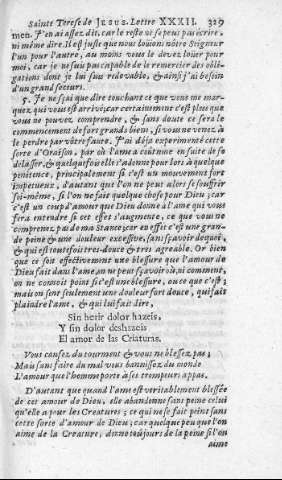 Sainte Terese de JESUS. Lettre XXXII. 329
men. J'en ai assez dit, car le reste ne se peut pas écrire,
ni même dire. Il est juste que nous loüions nôtre Seigneur
l'un pour l'autre, au moins vous le devez loüer pour
moi, car je ne suis pas capable de le remercier des obli-
gations dont je lui suis redevable, & ainsi j'ai besoin
d'un grand secours.
5. Je ne sçai que dire touchant ce que vous me mar-
quez, qui vous est arrivé; car certainement c'est plus que
vous ne pouvez comprendre, & sans doute ce sera le
commencement de fort grands biens, si vous ne venez à
le perdre par vôtre faute. J'ai déja experimenté cette
sorte d'Oraison, par où l'ame a coûtume en suite de se
delasser, & quelquefois elle s'adonne pour lors à quelque
penitence, principalement si c'est un mouvement fort
impetueux, d'autant que l'on ne peut alors se souffrir
soi-même, si l'on ne fait quelque chose pour Dieu; car
c'est un coup d'amour que Dieu donne à l'ame qui vous
fera intendre si cet effet s'augmente, ce que vous ne
comprenez pas de ma Stance; car en effet c'est une gran-
de peine & une douleur excessive, sans sçavoir dequoi,
& qui est toutefois tres-douce & tres agreable. Or bien
que ce soit effectivement une blessure que l'amour de
Dieu fait dans l'ame, on ne peut sçavoir où, ni comment,
on ne connoit point si c'est une blessure, ou ce que c'est;
mais on sent seulement une douleur fort douce, qui fait
plaindre l'ame, & qui lui fait dire,
Sin herir dolor hazeis,
Y sin dolor deshazeis
El amor de las Criaturas.
Vous causez du tourment & vous ne blessez pas;
Mais sans faire du mal vous bannissez du monde
L'amour que l'homme porte à ses trompeurs appas.
D'autant que quand l'ame est veritablement blessée
de cet amour de Dieu, elle abandonne sans peine celui
qu'elle a pour les Creatures; ce qui ne se fait point sans
cette sorte d'amour de Dieu; car quelque peu que l'on
aime de la Creature, donne toûjours de la peine si l'on
aime